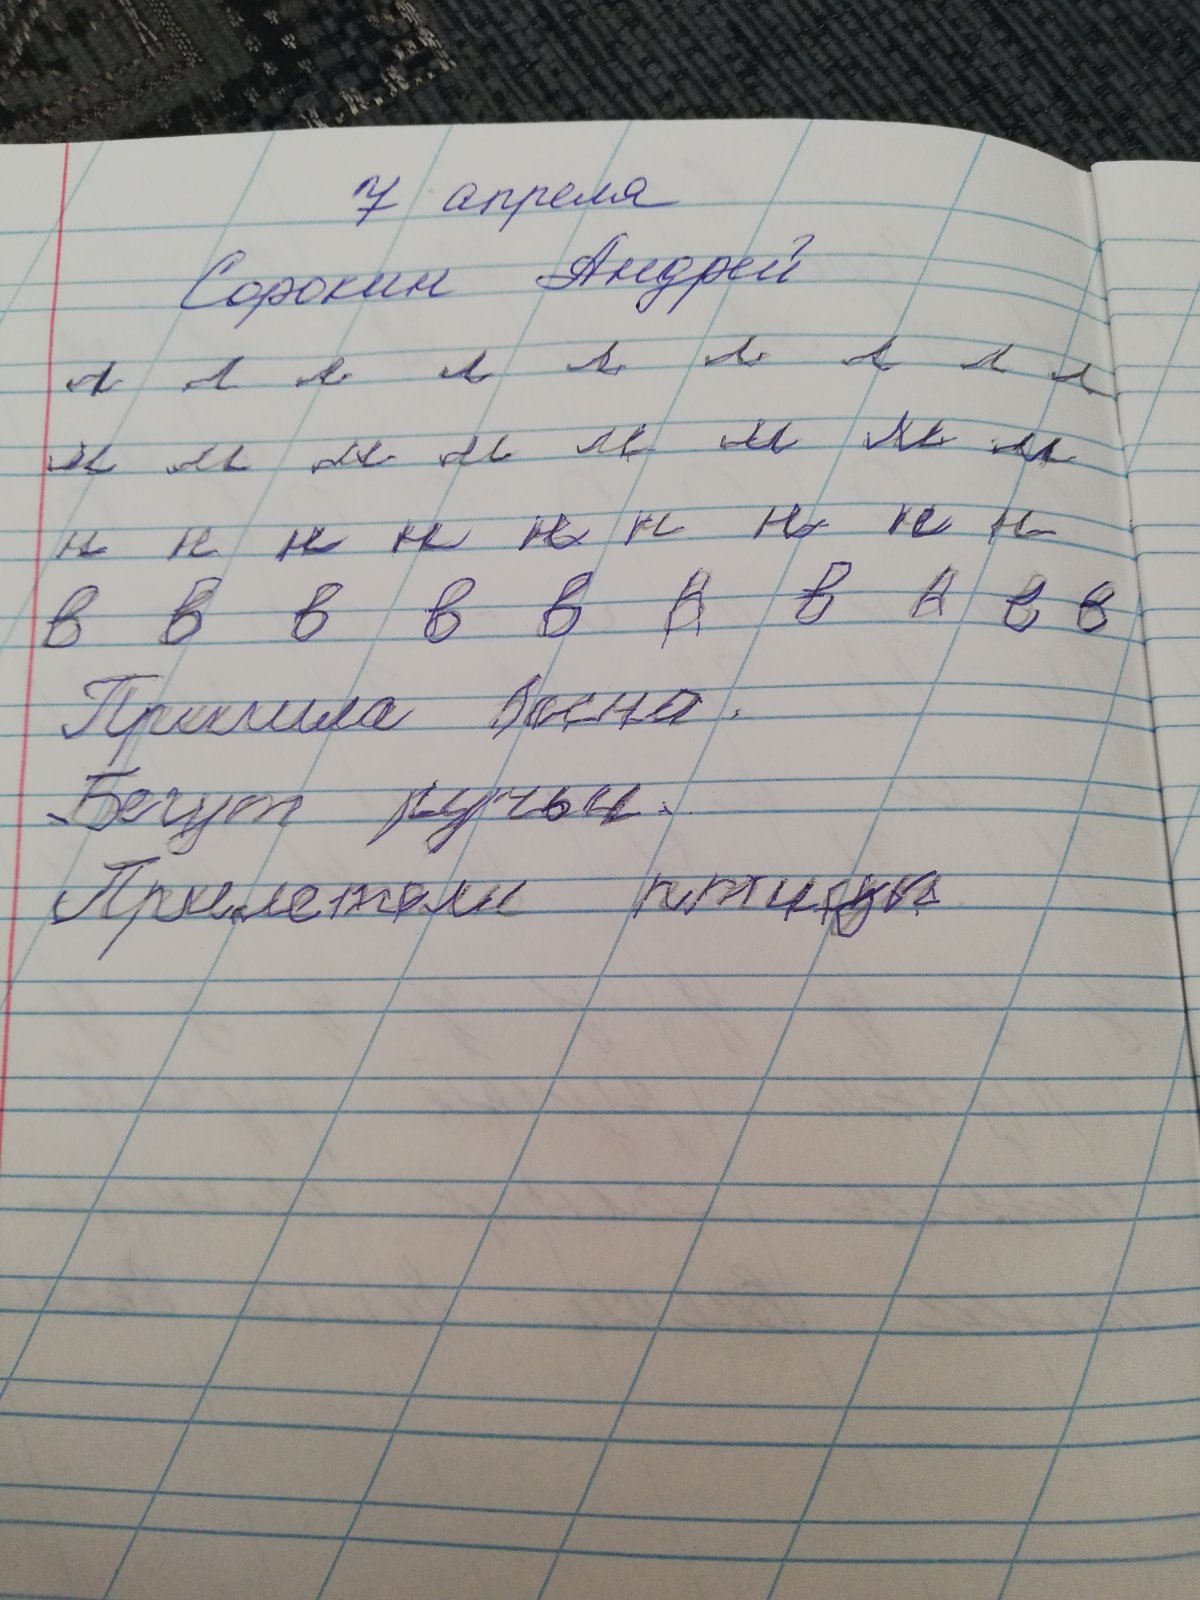 7 апреля
Сорокин Андрей
л л л л л л л л л
м м м м м м м м
н н н н н н н н н
в в в в в в в в в в
Пришла весна.
Бегут ручьи.
Прилетели птицы